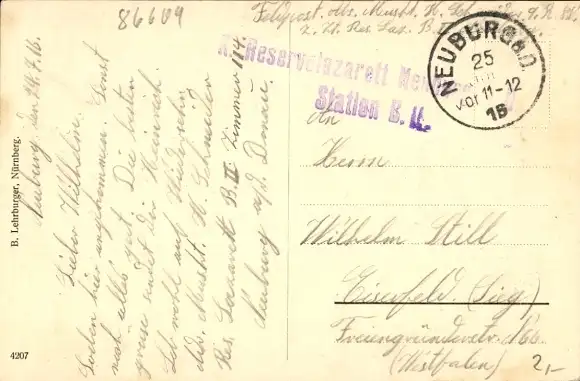 86604
Feldpost. Abs. Muskt. H. Schneider
z. Zt. Res. Laz. B.
K. Reservelazarett
Station B. II.
NEUBURG a.D.
25
vor 11-12
16
Neuburg, den 24.7.16.
Lieber Wilhelm.
Soeben hier angekommen. Sonst
noch alles gut. Die besten
grüsse sendet dir Heinrich.
Leb wohl auf Wiedersehn
Abs. Muskt. H. Schneider
Res. Lazarett B. II Zimmer 114.
Neuburg a/d. Donau.
An
Herrn
Wilhelm Still
Eiserfeld (Sieg)
Freiengründerstr.
(Westfalen)
2,-
B. Lehrburger, Nürnberg.
4207